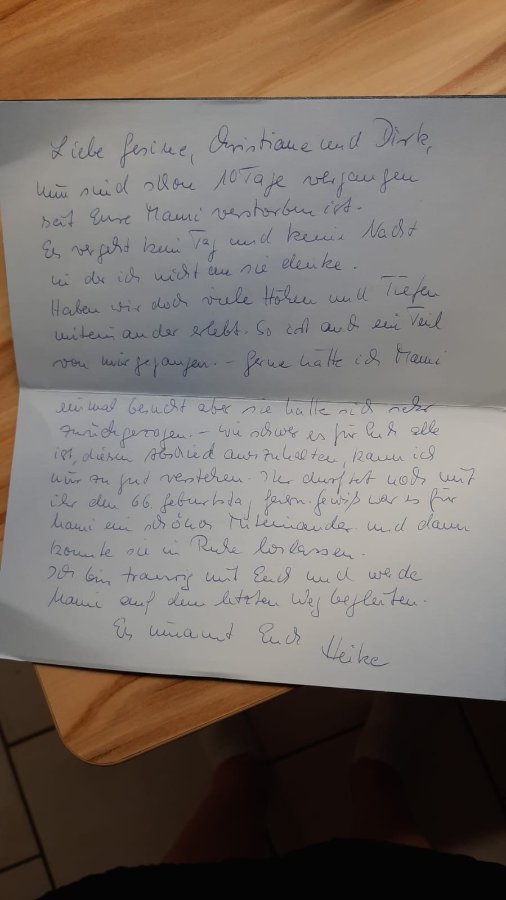 Liebe Gesine, Christiane und Dirk,
nun sind schon 10 Tage vergangen
seit Eure Mami verstorben ist.
Es vergeht kein Tag und keine Nacht
in der ich nicht an sie denke.
Haben wir doch viele Höhen und Tiefen
miteinander erlebt. So ist auch ein Teil
von mir gegangen. – Gerne hätte ich Mami
einmal besucht aber sie hatte sich sehr
zurückgezogen. – Wie schwer es für Euch alle
ist, diesen Abschied auszuhalten, kann ich
nur zu gut verstehen. Ihr durftet noch mit
ihr den 66. Geburtstag feiern. Gewiß war es für
Mami ein schönes Miteinander und dann
konnte sie in Ruhe loslassen.
Ich bin traurig mit Euch und werde
Mami auf dem letzten Weg begleiten.
Es umarmt Euch Heike